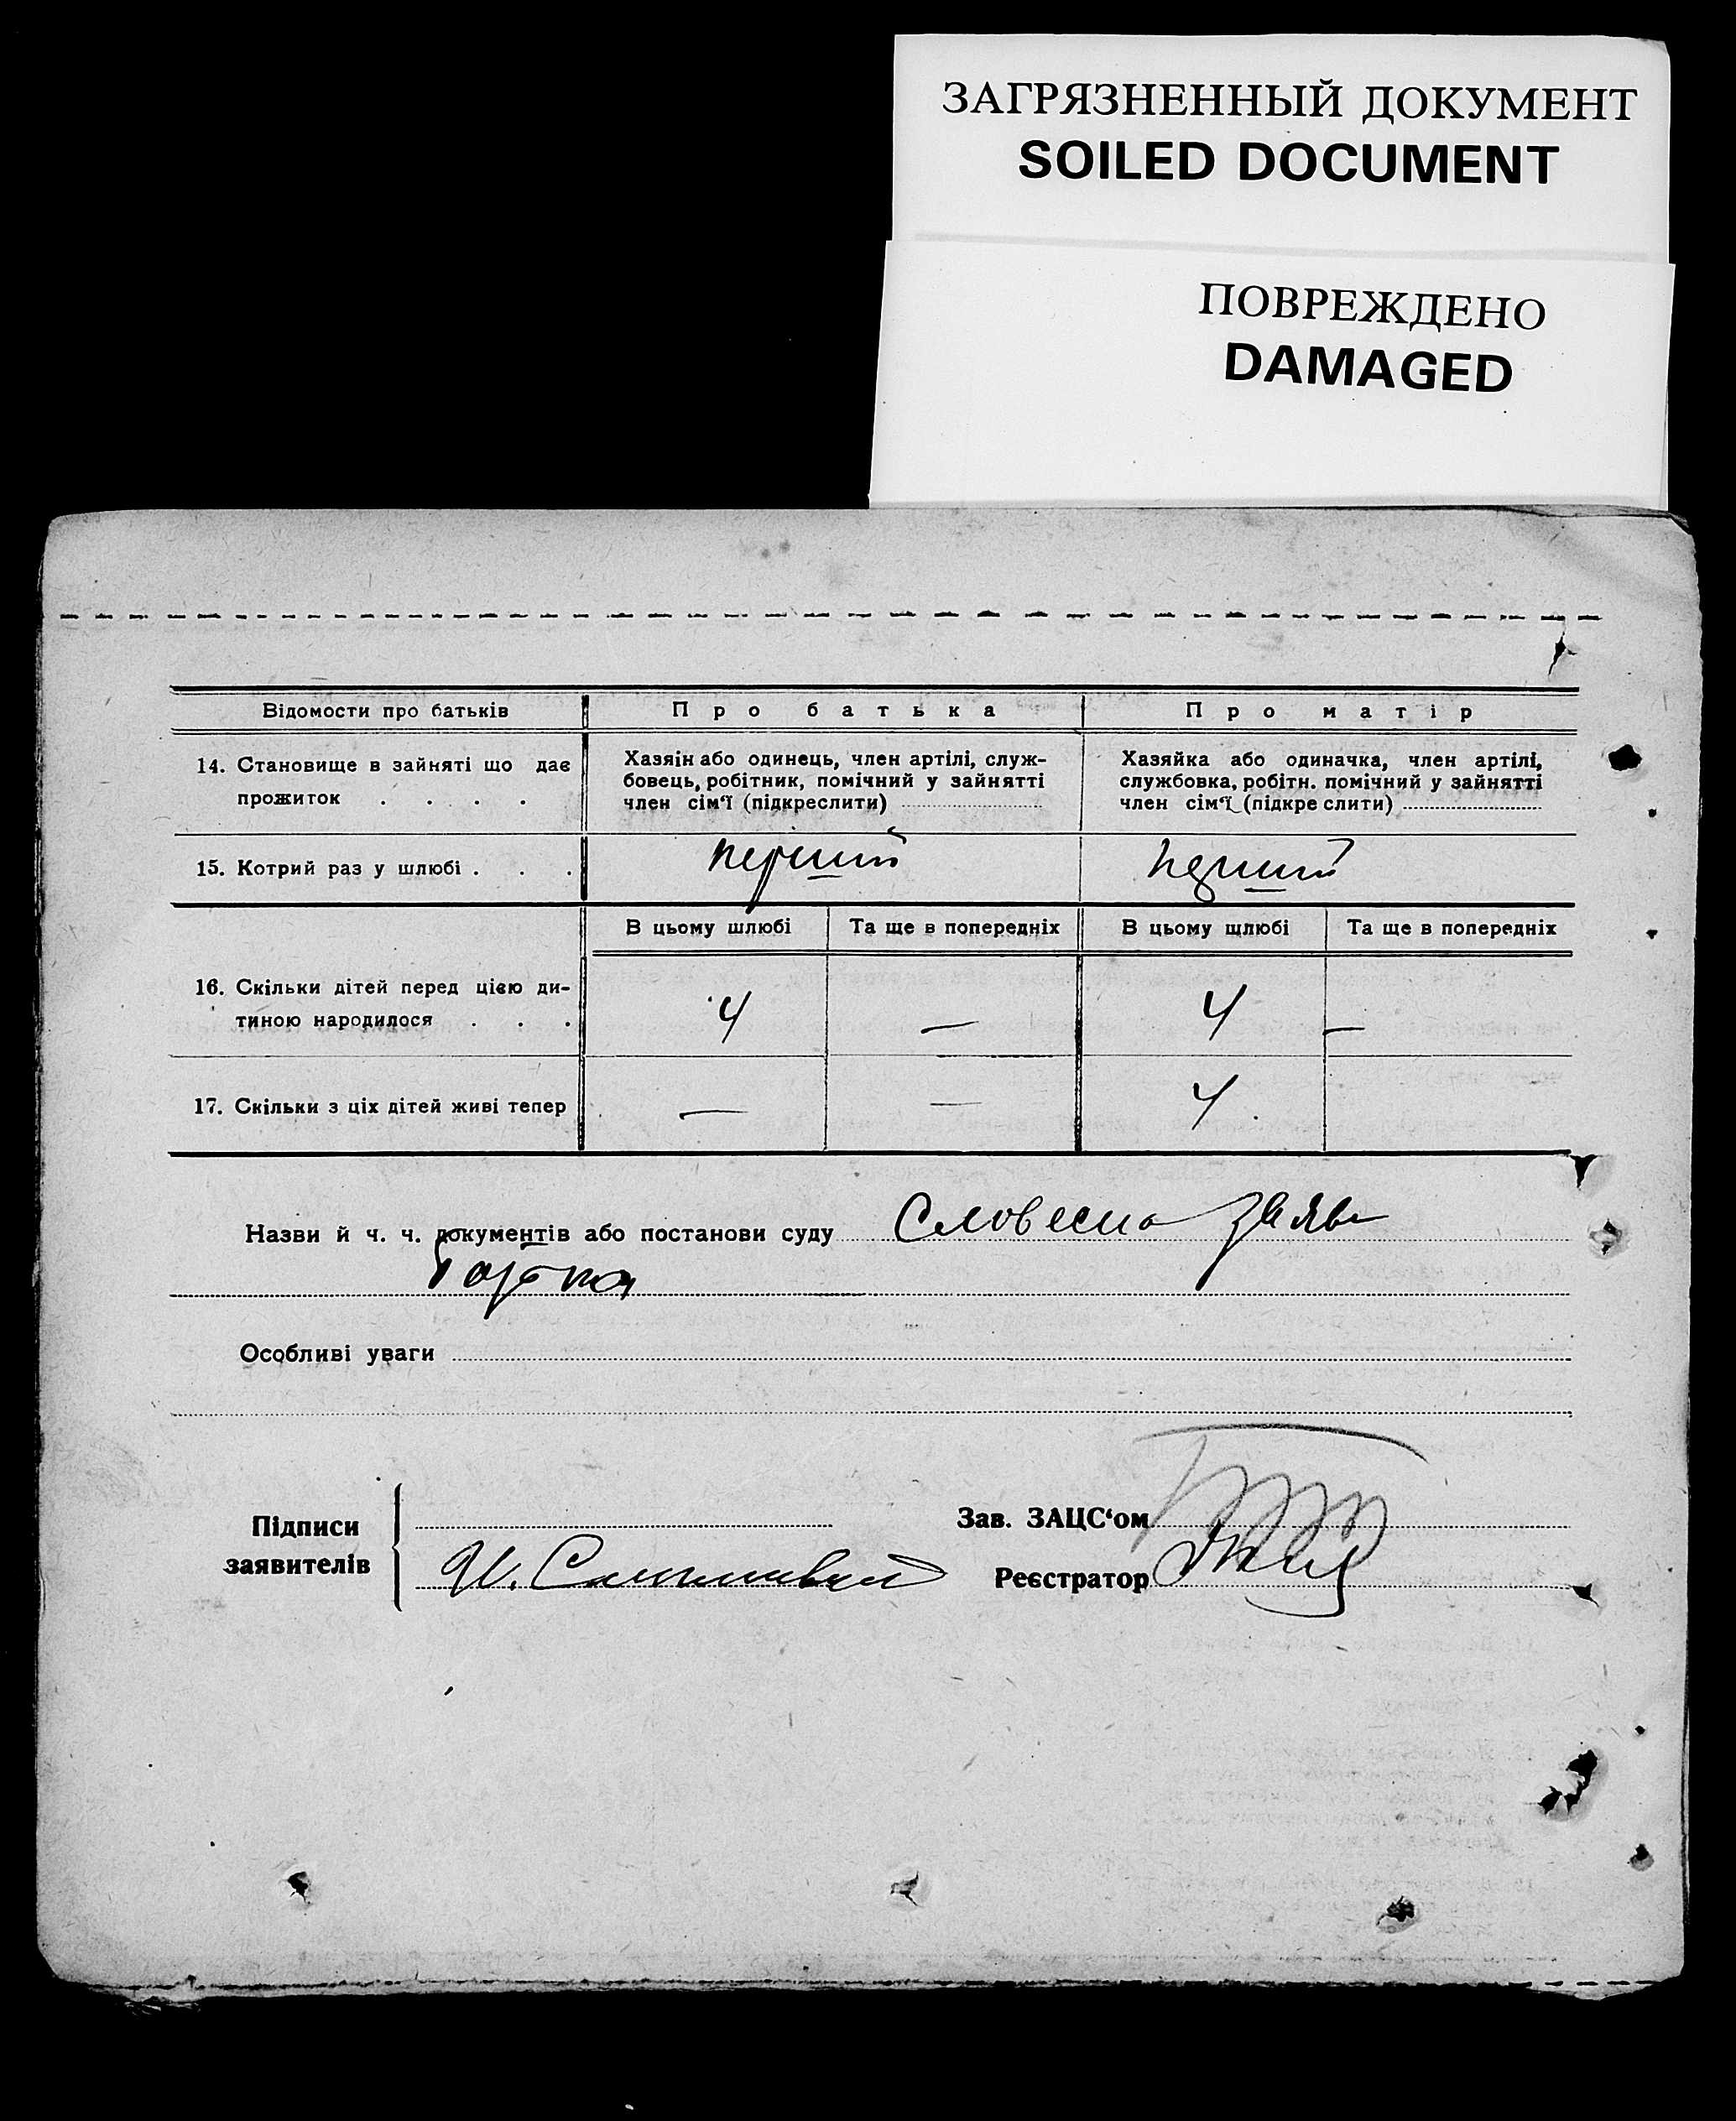 ЗАГРЯЗНЕННЫЙ ДОКУМЕНТ
SOILED DOCUMENT
ПОВРЕЖДЕНО
DAMAGED
Відомости про батьків Про батька Про матір
14. Становище в зайняті що дає
прожиток . . . .
Хазяїн або одинець, член артілі, служ-
бовець, робітник, помічний у зайнятті
член сім'ї (підкреслити)
Хазяйка або одиначка, член артілі,
службовка, робітн. помічний у зайнятті
член сім'ї (підкреслити)
15. Котрий раз у шлюбі . . . перший перший
В цьому шлюбі Та ще в попередніх В цьому щлюбі Та ще в попередніх
16. Скільки дітей перед цією ди-
тиною народилося . . . 4 — 4 —
17. Скільки з ціх дітей живі тепер — — 4
Назви й ч. ч. документів або постанови суду Словесна заява
батька
Особливі уваги
Підписи
заявителів
Зав. ЗАЦС'ом
Реєстратор